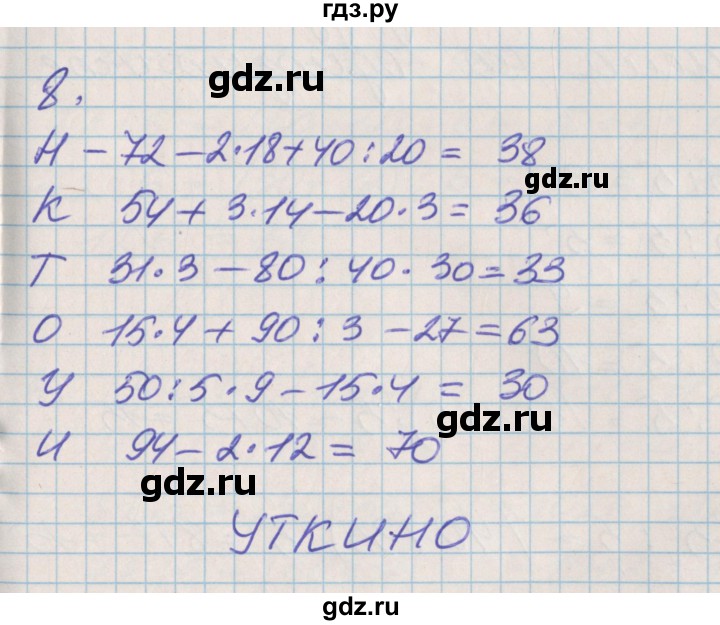 гдз.ру
gdz.ru
8.
Н – 72 – 2·18 + 40 : 20 = 38
gdz.ru
К 54 + 3·14 – 20·3 = 36
Т 31·3 – 80 : 40·30 = 33
О 15·4 + 90 : 3 – 27 = 63
У 50 : 5·9 – 15·4 = 30
gdz.ru
И 94 – 2·12 = 70
gdz.ru
УТКИНО
gdz.ru